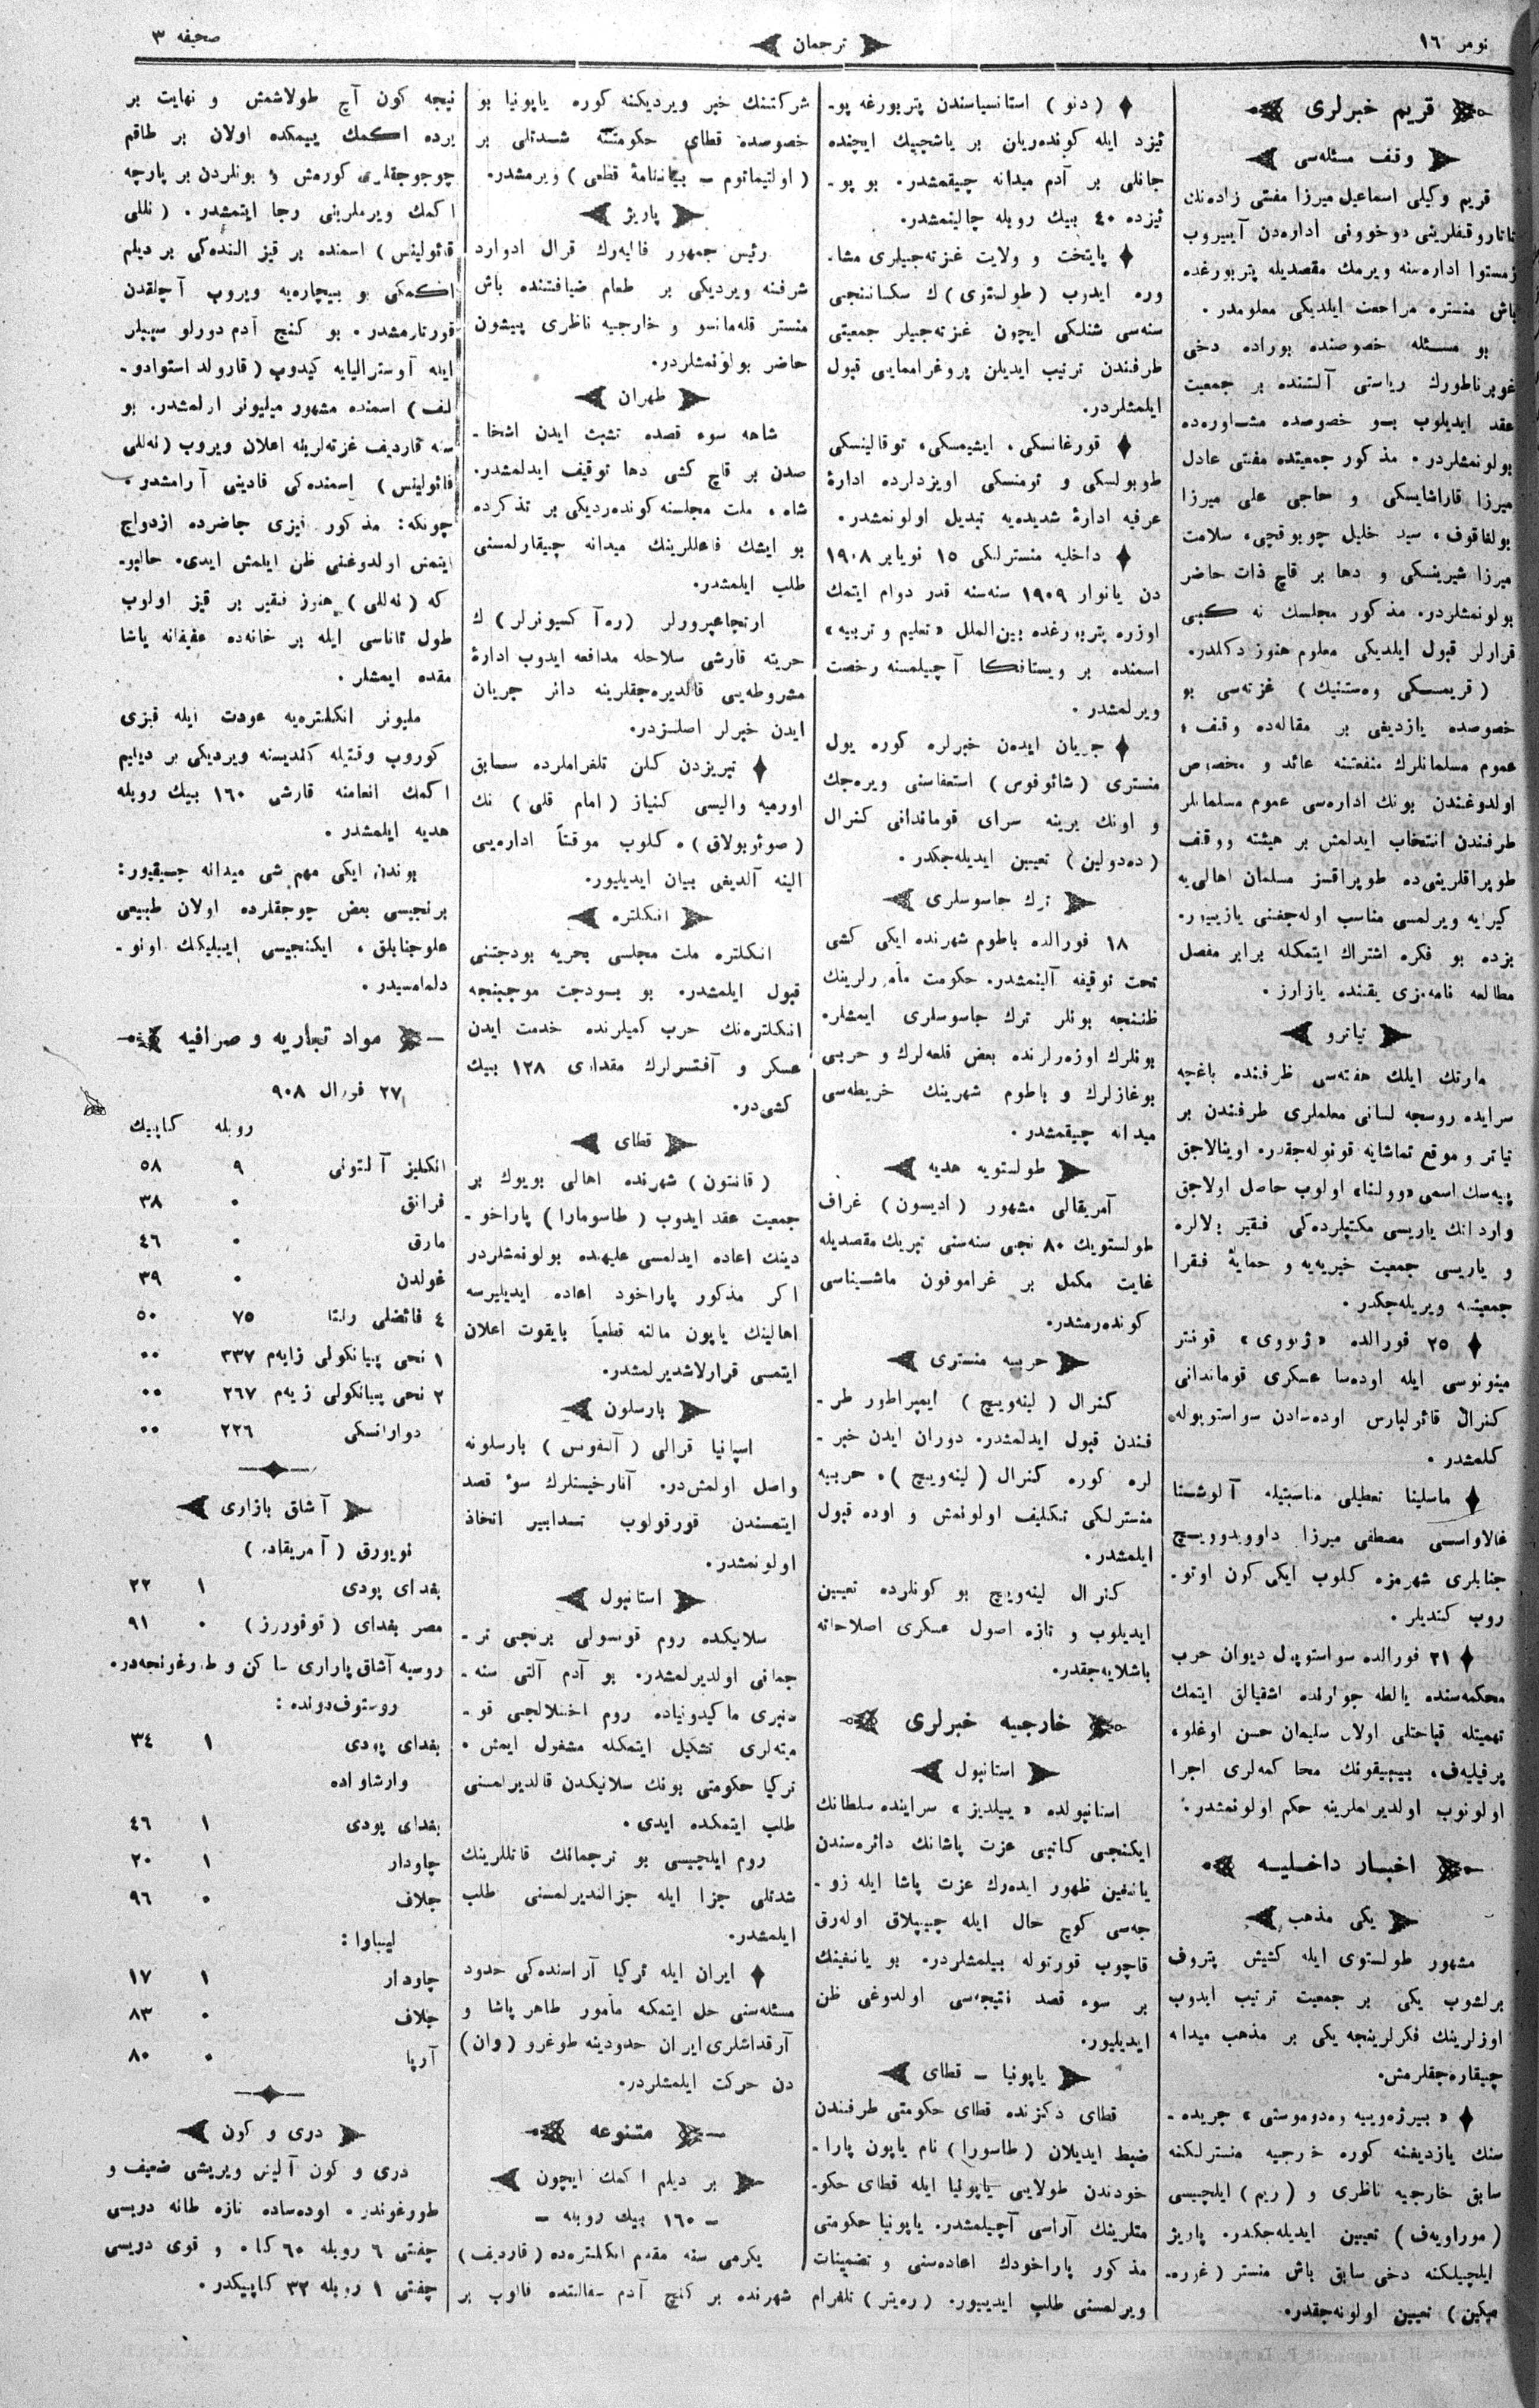 نومر ١٦
ترجمان
صحیفه ٣
قریم خبرلری
وقف مسئله‌سی
قریم وکیلی اسماعیل میرزا مفتی زاده‌نك
تاتار وقفلرینی دوخوونی اداره‌دن آییروب
زمستوا اداره‌سنه ویرمك مقصدیله پتربورغده
باش منستره مراجعت ایلدیکی معلومدر.
بو مسئله خصوصنده بوراده دخی
غوبرناطورك ریاستی آلتنده بر جمعیت
عقد ایدیلوب بو خصوصده مشاوره‌ده
بولونمشلردر. مذکور جمعیتده مفتی عادل
میرزا قاراشایسکی و حاجی علی میرزا
بولغاقوف، سید خلیل چوبوقچی، سلامت
میرزا شیرینسکی و دها بر قاچ ذات حاضر
بولونمشلردر. مذکور مجلسك نه کبی
قرارلر قبول ایلدیکی معلوم هنوز دکلدر.
(قریمسکی وه‌ستنیك) غزته‌سی بو
خصوصده یازدیغی بر مقاله‌ده وقف،
عموم مسلمانلرك منفعتنه عائد و مخصوص
اولدوغندن بونك اداره‌سی عموم مسلمانلر
طرفندن انتخاب ایدلمش بر هیئته ووقف
طوپراقلرینی‌ده طوپراقسز مسلمان اهالی‌یه
کیرایه ویرلمسی مناسب اوله‌جغنی یازییور.
بزده بو فکره اشتراك ایتمکله برابر مفصل
مطالعه نامه‌مزی یقینده یازارز.
تیاترو
مارتك ایلك هفته‌سی ظرفنده باغچه
سرایده روسجه لسانی معلملری طرفندن بر
تیاتر و موقع تماشایه قونوله‌جقدر. اوینالاجق
پیه‌سك اسمی «وولنا» اولوب حاصل اولاجق
وارداتك یاریسی مکتبلرده‌کی فقیر بالالره
و یاریسی جمعیت خیریه‌یه و حمایۀ فقرا
جمعیتنه ویریله‌جکدر.
٢٥ فورالده «ژیووی» قونتر
مینونوسی ایله اوده‌سا عسکری قوماندانی
کنرال قائولبارس اوده‌سادن سواستوپوله
کلمشدر.
ماسلینا تعطیلی مناسبتیله آلوشتا
غالاواسی مصطفی میرزا داوویدوویچ
جنابلری شهرمزه کلوب ایکی کون اوتو-
روب کتدیلر.
٢١ فورالده سواستوپول دیوان حرب
محکمه‌سنده یالطه جوارنده اشقیالق ایتمك
تهمتیله قباحتلی اولان سلیمان حسن اوغلو،
پرفیلیه‌ف، بیبیقوفنك محاکمه‌لری اجرا
اولونوب اولدیرلملرینه حکم اولونمشدر.
اخبار داخلیه
یکی مذهب
مشهور طولستوی ایله کشیش پتروف
برلشوب یکی بر جمعیت ترتیب ایدوب
اوزلرینك فکرلرینجه یکی بر مذهب میدانه
چیقاره‌جقلرمش.
«بیرژه‌وییه وه‌دوموستی» جریده-
سنك یازدیغنه کوره خارجیه منسترلکنه
سابق خارجیه ناظری و (ریم) ایلچیسی
(موراویه‌ف) تعیین ایدیله‌جکدر. پاریژ
ایلچیلکنه دخی سابق باش منستر (غوره-
میکین) تعیین اولونه‌جقدر.
(دنو) استانسیاسندن پتربورغه پو-
ئیزد ایله کونده‌ریلن بر یاشچیك ایچنده
جانلی بر آدم میدانه چیقمشدر. بو پو-
ئیزده ٤٠ بیك روبله چالینمشدر.
پایتخت و ولایت غزته‌جیلری مشا-
وره ایدوب (طولستوی)ك سکساننجی
سنه‌سی شنلکی ایچون غزته‌جیلر جمعیتی
طرفندن ترتیب ایدیلن پروغراممایی قبول
ایلمشلردر.
قورغانسکی، ایشیمسکی، توقالینسکی
طوبولسکی و تومسکی اویزدلرده ادارۀ
عرفیه ادارۀ شدیده‌یه تبدیل اولونمشدر.
داخلیه منسترلکی ١٥ نویابر ١٩٠٨
دن یانوار ١٩٠٩ سنه‌سنه قدر دوام ایتمك
اوزره پتربورغده بین‌الملل «تعلیم و تربیه»
اسمنده بر ویستافکا آچیلمسنه رخصت
ویرلمشدر.
جریان ایده‌ن خبرلره کوره یول
منستری (شائوفوس) استعفاسنی ویره‌جك
و اونك یرینه سرای قوماندانی کنرال
(ده‌دولین) تعیین ایدیله‌جکدر.
ترك جاسوسلری
١٨ فورالده باطوم شهرنده ایکی کشی
تحت توقیفه آلینمشدر. حکومت مأمورلرینك
ظننجه بونلر ترك جاسوسلری ایمشلر.
بونلرك اوزه‌رلرنده بعض قلعه‌لرك و حربی
بوغازلرك و باطوم شهرینك خریطه‌سی
میدانه چیقمشدر.
طولستویه هدیه
آمریقالی مشهور (ادیسون) غراف
طولستوینك ٨٠ نجی سنه‌سنی تبریك مقصدیله
غایت مکمل بر غراموفون ماشیناسی
کونده‌رمشدر.
حربیه منستری
کنرال (لینه‌ویچ) ایمپراطور طر-
فندن قبول ایدلمشدر. دوران ایدن خبر-
لره کوره کنرال (لینه‌ویچ)، حربیه
منسترلکی تکلیف اولونمش و اوده قبول
ایلمشدر.
کنرال لینه‌ویچ بو کونلرده تعیین
ایدیلوب و تازه اصول عسکری اصلاحاته
باشلایه‌جقدر.
خارجیه خبرلری
استانبول
استانبولده «ییلدیز» سراینده سلطانك
ایکنجی کاتبی عزت پاشانك دائره‌سندن
یانغین ظهور ایده‌رك عزت پاشا ایله زو-
جه‌سی کوچ حال ایله چیپلاق اوله‌رق
قاچوب قورتوله بیلمشلردر. بو یانغینك
بر سوء قصد نتیجه‌سی اولدوغی ظن
ایدیلیور.
یاپونیا – قطای
قطای دکزنده قطای حکومتی طرفندن
ضبط ایدیلان (طاسورا) نام یاپون پارا-
خودندن طولایی یاپونیا ایله قطای حکو-
متلرینك آراسی آچیلمشدر. یاپونیا حکومتی
مذکور پاراخودك اعاده‌سنی و تضمینات
ویرلمسنی طلب ایدییور. (ره‌یتر) تلغرام
شرکتنك خبر ویردیکنه کوره یاپونیا بو
خصوصده قطای حکومتنه شدتلی بر
(اولتیماتوم – بیاننامۀ قطعی) ویرمشدر.
پاریژ
رئیس جمهور فالیه‌رك قرال ادوارد
شرفنه ویردیکی بر طعام ضیافتنده باش
منستر قله‌مانسو و خارجیه ناظری پیشون
حاضر بولونمشلردر.
طهران
شاهه سوء قصده تشبث ایدن اشخا-
صدن بر قاچ کشی دها توقیف ایدلمشدر.
شاه، ملت مجلسنه کونده‌ردیکی بر تذکرده
بو ایشك فاعللرینك میدانه چیقارلمسنی
طلب ایلمشدر.
ارتجاعپرورلر (ره‌آکسیونرلر)ك
حریته قارشی سلاحله مدافعه ایدوب ادارۀ
مشروطه‌یی قالدیره‌جقلرینه دائر جریان
ایدن خبرلر اصلسزدر.
تبریزدن کلن تلغراملرده سابق
اورمیه والیسی کنیاز (امام قلی) نك
(صوئوبولاق)، کلوب موقتاً اداره‌یی
الینه آلدیغی بیان ایدیلیور.
انکلتره
انکلتره ملت مجلسی بحریه بودجتنی
قبول ایلمشدر. بو بودجت موجبنجه
انکلتره‌نك حرب کمیلرنده خدمت ایدن
عسکر و آفتسرلرك مقداری ١٢٨ بیك
کشی‌در.
قطای
(قانتون) شهرنده اهالی بویوك بر
جمعیت عقد ایدوب (طاسومارا) پاراخو-
دینك اعاده ایدلمسی علیهنده بولونمشلردر
اکر مذکور پاراخود اعاده ایدیلیرسه
اهالینك یاپون مالنه قطعیاً بایقوت اعلان
ایتمسی قرارلاشدیرلمشدر.
بارسلون
اسپانیا قرالی (آلفونس) بارسلونه
واصل اولمش‌در. آنارخیستلرك سوء قصد
ایتمسندن قورقولوب تدابیر اتخاذ
اولونمشدر.
استانبول
سلانیکده روم قونسولی برنجی تر-
جمانی اولدیرلمشدر. بو آدم آلتی سنه-
دنبری ماکیدونیاده روم اختلالجی قو-
میته‌لری تشکیل ایتمکله مشغول ایمش.
ترکیا حکومتی بونك سلانیکدن قالدیرلمسنی
طلب ایتمکده ایدی.
روم ایلچیسی بو ترجمانك قاتللرینك
شدتلی جزا ایله جزالندیرلمسنی طلب
ایلمشدر.
ایران ایله ترکیا آراسنده‌کی حدود
مسئله‌سنی حل ایتمکه مأمور طاهر پاشا و
آرقداشلری ایران حدودینه طوغرو (وان)
دن حرکت ایلمشلردر.
متنوعه
بر دیلم اکمك ایچون
– ١٦٠ بیك روبله –
یکرمی سنه مقدم انکلتره‌ده (قاردیف)
شهرنده بر کنچ آدم سفالتده قالوب بر
نیجه کون آچ طولاشمش و نهایت بر
یرده اکمك ییمکده اولان بر طاقم
چوجوجقلری کورمش و بونلردن بر پارچه
اکمك ویرملرینی رجا ایتمشدر. (نللی
قائولینس) اسمنده بر قیز النده‌کی بر دیلم
اکمکی بو بیچاره‌یه ویروب آچلقدن
قورتارمشدر. بو کنج آدم دورلو سببلر
ایله آوسترالیایه کیدوب (قارولد استوادو-
لف) اسمنده مشهور میلیونر ارلمشدر. بو
سنه قاردیف غزته‌لرینه اعلان ویروب (نه‌للی
قائولینس) اسمنده‌کی قادینی آرامشدر.
چونکه: مذکور قیزی حاضرده ازدواج
ایتمش اولدوغنی ظن ایلمش ایدی. حالبو-
که (نه‌للی) هنوز فقیر بر قیز اولوب
طول آناسی ایله بر خانه‌ده عفیفانه یاشا
مقده ایمشلر.
ملیونر انکلتره‌یه عودت ایله قیزی
کوروب وقتیله کندیسنه ویردیکی بر دیلیم
اکمك انعامنه قارشی ١٦٠ بیك روبله
هدیه ایلمشدر.
بوندن ایکی مهم شی میدانه چیقیور:
برنجیسی بعض چوجقلرده اولان طبیعی
علوجنابلق، ایکنجیسی اییبلیکك اونو-
دلمامسیدر.
مواد تجاریه و صرافیه
٢٧ فورال ٩٠٨
روبله کاپیك
انکلیز آلتونی ٩ ٥٨
فرانق ٠ ٣٨
مارق ٠ ٤٦
غولدن ٠ ٣٩
٤ فائضلی رانتا ٧٥ ٥٠
١ نجی پییانکولی زایه‌م ٣٣٧ ٠٠
٢ نجی پییانکولی زیه‌م ٢٦٧ ٠٠
دوارانسکی ٢٢٦ ٠٠
آشلق بازاری
نویورق (آمریقاده)
بغدای پودی ١ ٢٢
مصر بغدای (قوقورز) ٠ ٩١
روسیه آشلق پازاری ساکن و طورغونجه‌در.
روستوف‌دونده:
بغدای پودی ١ ٣٤
وارشاواده
بغدای پودی ١ ٤٦
چاودار ١ ٢٠
جلاف ٠ ٩٦
لیباوا:
چاودار ١ ١٧
جلاف ٠ ٨٣
آرپا ٠ ٨٠
دری و کون
دری و کون آلیش ویریشی ضعیف و
طوورغوندر. اوده‌ساده تازه طانه دریسی
چفتی ٦ روبله ٦٠ کا. و قوی دریسی
چفتی ١ روبله ٣٢ کاپیکدر.